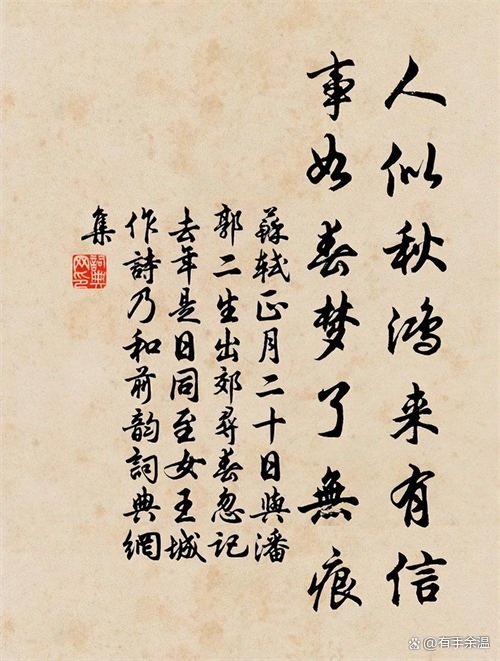 人似秋鸿来有信
事如春梦了無痕
蘇軾正月二十日與潘
郭二生出郊尋春忽记
去年是日同至女王城
作詩乃和前韵詞典網
集
詞典
网印
有丰余温